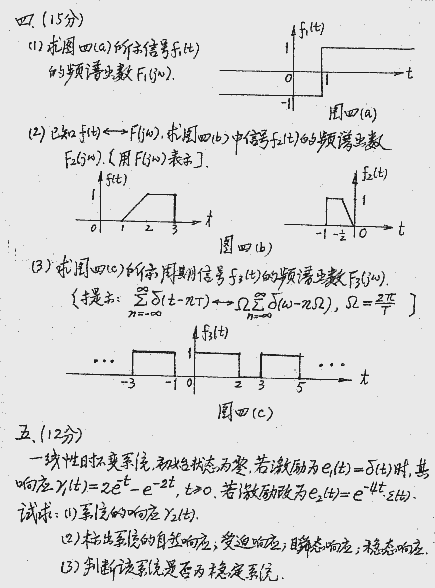 四、(15分)
(1) 求图四(a)所示信号f₁(t)
的频谱函数F₁(jω).
f₁(t)
1
0
1
t
-1
图四(a)
(2) 已知f(t)⟷F(jω), 求图四(b)中信号f₂(t)的频谱函数
F₂(jω). [用F(jω)表示].
f(t)
1
0 1 2 3 t
f₂(t)
1
-1 -½ 0 t
图四(b)
(3) 求图四(c)所示周期信号f₃(t)的频谱函数F₃(jω).
{提示: ∑_{n=-∞}^{∞} δ(t-nT) ⟷ Ω∑_{n=-∞}^{∞} δ(ω-nΩ), Ω = 2π/T ]
f₃(t)
1
... ...
-3 -1 0 2 3 5 t
图四(c)
五、(12分)
一线性时不变系统, 初始状态为零. 若激励为e₁(t)=δ(t)时, 其
响应r₁(t)=2e^{-t}-e^{-2t}, t>0. 若激励改为e₂(t)=e^{-4t}·ε(t).
试求: (1) 系统的响应r₂(t).
(2) 标出系统的自然响应; 受迫响应; 瞬态响应; 稳态响应.
(3) 判断该系统是否为稳定系统.